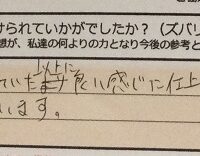 けられていかがでしたか？（ズバリ
想が、私達の何よりの力となり今後の参考と
以上に
ていたます良い感じに仕上
います。